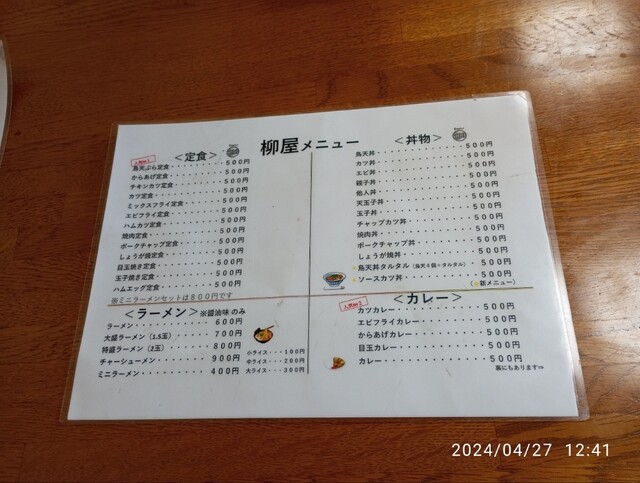 柳屋メニュー
<定食>
人気No.1
鳥天ぷら定食・・・・・・・・500円
からあげ定食・・・・・・・・500円
チキンカツ定食・・・・・・・500円
カツ定食・・・・・・・・・・500円
ミックスフライ定食・・・・・500円
エビフライ定食・・・・・・・500円
ハムカツ定食・・・・・・・・500円
焼肉定食・・・・・・・・・・500円
ポークチャップ定食・・・・・500円
しょうが焼定食・・・・・・・500円
目玉焼き定食・・・・・・・・500円
玉子焼き定食・・・・・・・・500円
ハムエッグ定食・・・・・・・500円
※ミニラーメンセットは800円です
<丼物>
鳥天丼・・・・・・・・・・・500円
カツ丼・・・・・・・・・・・500円
エビ丼・・・・・・・・・・・500円
親子丼・・・・・・・・・・・500円
他人丼・・・・・・・・・・・500円
天玉子丼・・・・・・・・・・500円
玉子丼・・・・・・・・・・・500円
チャップカツ丼・・・・・・・500円
焼肉丼・・・・・・・・・・・500円
ポークチャップ丼・・・・・・500円
しょうが焼丼・・・・・・・・500円
鳥天丼タルタル(鳥天4個+タルタル)・500円
ソースカツ丼・・・・・・・・500円
(★新メニュー)
<ラーメン>※醤油味 のみ
ラーメン・・・・・・・・・600円
大盛ラーメン(1.5玉)・・・・700円
特盛ラーメン(2玉)・・・・・800円
チャーシューメン・・・・・・900円
ミニラーメン・・・・・・・・400円
小ライス・・・100円
中ライス・・・200円
大ライス・・・300円
<カレー>
人気No.2
カツカレー・・・・・・・・・500円
エビフライカレー・・・・・・500円
からあげカレー・・・・・・・500円
目玉カレー・・・・・・・・・500円
カレー・・・・・・・・・・・500円
裏にもあります⇒
2024/04/27 12:41